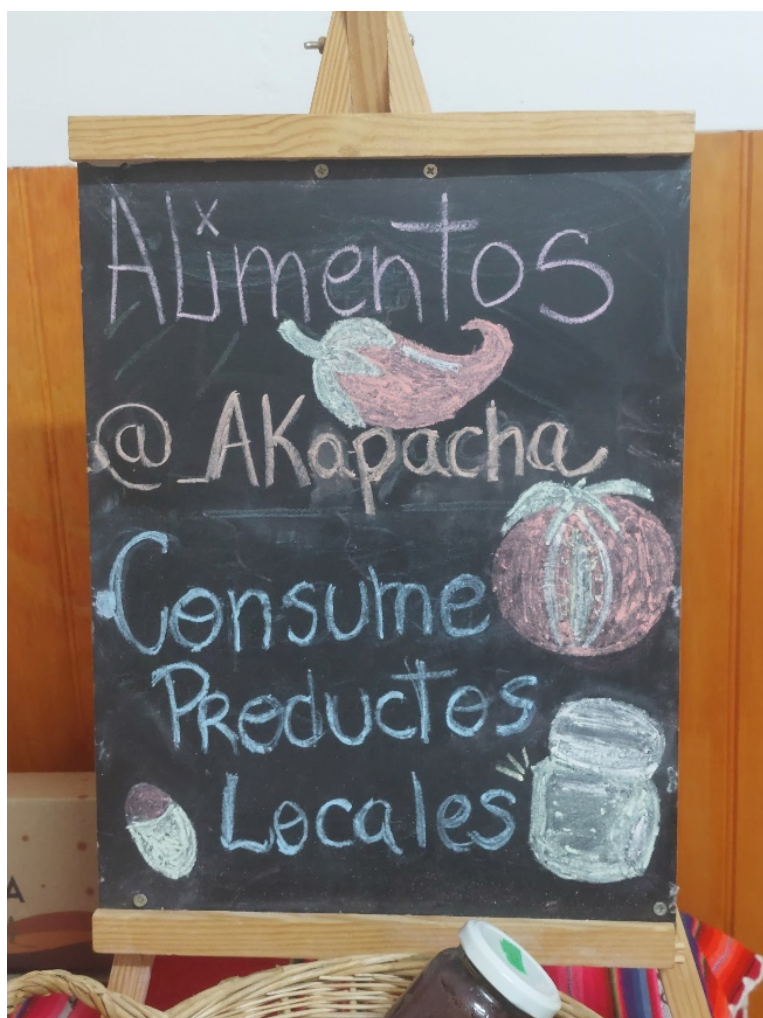 Alimentos
@_AKapacha
Consume
Productos
Locales